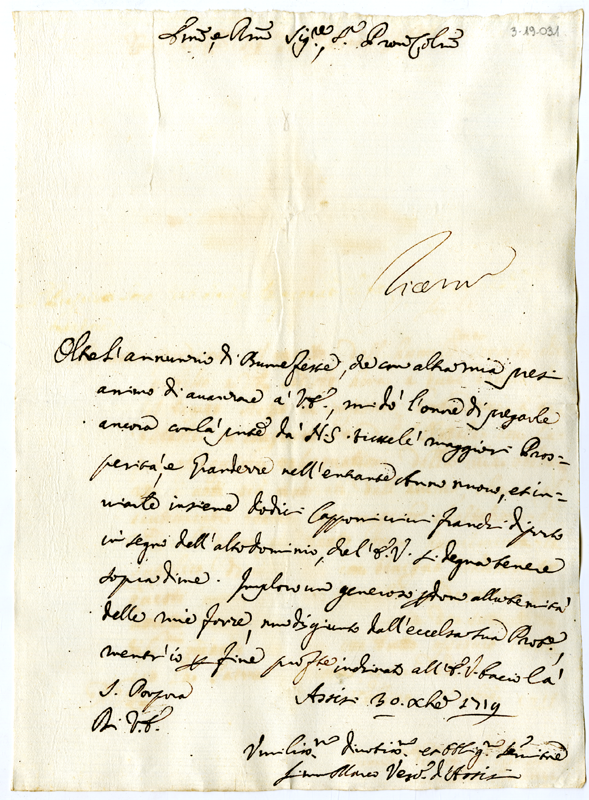 3-19-031
Em̃o, e Rm̃o Sig.re, S.r Pron̄ Col.mo
Oltre l'annunzio di Buone feste, che con altra mia presi
animo di avanzare à V.E., mi dò l'onore di pregarle
ancora con la pnte da N.S. tutte le maggiori Pros=
perità, e Grandezze nell'entrante Anno nuovo, et in=
viarle insieme dodici Capponi vivi franchi di porto
in segno dell'alto dominio, che l'E.V. si degna tenere
sopra di me. Imploro un generoso pdono alla tenuità
delle mie forze, non disgiunto dall'eccelsa sua Prot.e,
mentr'io p fine profte inchinato all'E.V. bacio la
S. Porpora
Assisi 30. Xbre 1719
Di V.E.
Umiliss.mo Divotiss.mo et Obblig.mo Servitore
Vesc.o d'Assisi